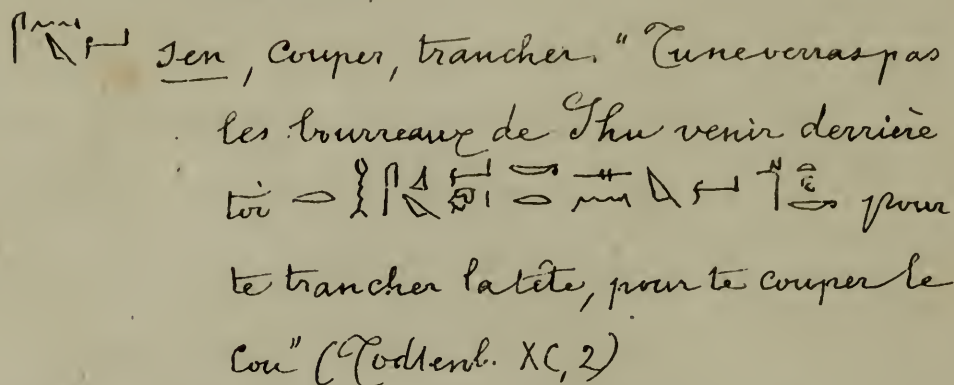 sen, couper, trancher. "Tu ne verras pas
les bourreaux de Shu venir derrière
toi pour
te trancher la tête, pour te couper le
cou" (Todtenb. XC, 2)